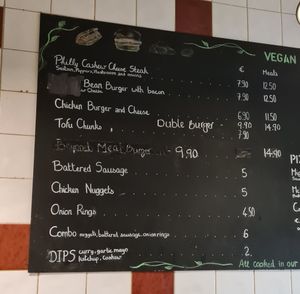 VEGAN
Philly Cashew Cheese Steak € Meals
Seitan, Peppers, Mushrooms and onions 7.90 12.50
Bean Burger with bacon 7.90 12.50
Chicken Burger and Cheese 6.90 11.50
Tofu Chunks, Duble Burger - 9.90 14.90
7.90
Beyond Meat Burger - 9.90 14.90
Battered Sausage 5
Chicken Nuggets 5
Onion Rings 4.50
Combo nuggets, battered sausage, onion rings 6
DIPS curry, garlic mayo 2.
ketchup, cashew
All cooked in our